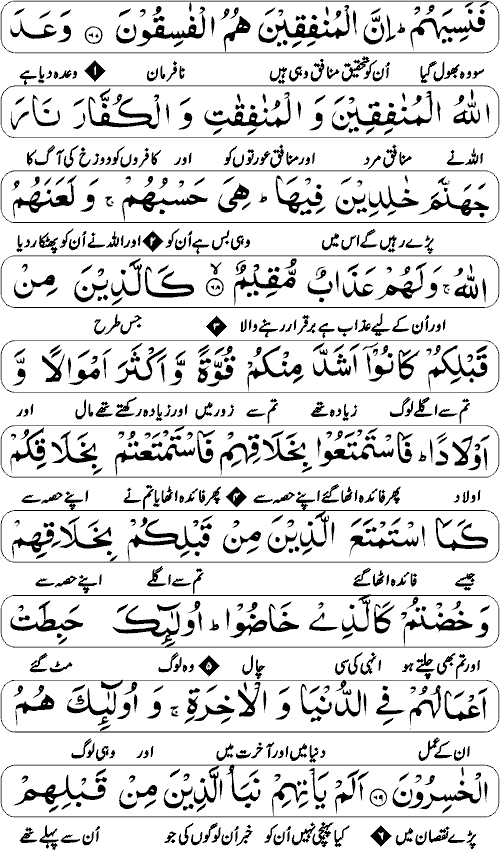 فَنَسِيَهُمْ ؕ اِنَّ الْمُنٰفِقِيْنَ هُمُ الْفٰسِقُوْنَ ﴿۶۷﴾ وَعَدَ
سو وہ بھول گیا اُن کو تحقیق منافق وہی ہیں نافرمان ۱ وعدہ دیا ہے
اللّٰهُ الْمُنٰفِقِيْنَ وَ الْمُنٰفِقٰتِ وَ الْكُفَّارَ نَارَ
اللہ نے منافق مرد اور منافق عورتوں کو اور کافروں کو دوزخ کی آگ کا
جَهَنَّمَ خٰلِدِيْنَ فِيْهَا ؕ هِيَ حَسْبُهُمْ ۚ وَ لَعَنَهُمُ
پڑے رہیں گے اس میں وہی بس ہے اُن کو ۲ اور اللہ نے اُن کو پھٹکار دیا
اللّٰهُ ۚ وَلَهُمْ عَذَابٌ مُّقِيْمٌ ﴿۶۸﴾ۙ كَالَّذِيْنَ مِنْ
اور اُن کے لیے عذاب ہے برقرار رہنے والا ۳ جس طرح
قَبْلِكُمْ كَانُوْۤا اَشَدَّ مِنْكُمْ قُوَّةً وَّ اَكْثَرَ اَمْوَالًا وَّ
تم سے اگلے لوگ زیادہ تھے تم سے زور میں اور زیادہ رکھتے تھے مال اور
اَوْلَادًا ؕ فَاسْتَمْتَعُوْا بِخَلَاقِهِمْ فَاسْتَمْتَعْتُمْ بِخَلَاقِكُمْ
اولاد پھر فائدہ اٹھا گئے اپنے حصہ سے ۴ پھر فائدہ اٹھایا تم نے اپنے حصہ سے
كَمَا اسْتَمْتَعَ الَّذِيْنَ مِنْ قَبْلِكُمْ بِخَلَاقِهِمْ
جیسے فائدہ اٹھا گئے تم سے اگلے اپنے حصہ سے
وَ خُضْتُمْ كَالَّذِيْ خَاضُوْا ؕ اُولٰٓئِكَ حَبِطَتْ
اور تم بھی چلتے ہو انہی کی سی چال ۵ وہ لوگ مٹ گئے
اَعْمَالُهُمْ فِي الدُّنْيَا وَ الْاٰخِرَةِ ۚ وَ اُولٰٓئِكَ هُمُ
ان کے عمل دنیا میں اور آخرت میں اور وہی لوگ
الْخٰسِرُوْنَ ﴿۶۹﴾ اَلَمْ يَاْتِهِمْ نَبَاُ الَّذِيْنَ مِنْ قَبْلِهِمْ
پڑے نقصان میں ۶ کیا پہنچی نہیں اُن کو خبر اُن لوگوں کی جو اُن سے پہلے تھے